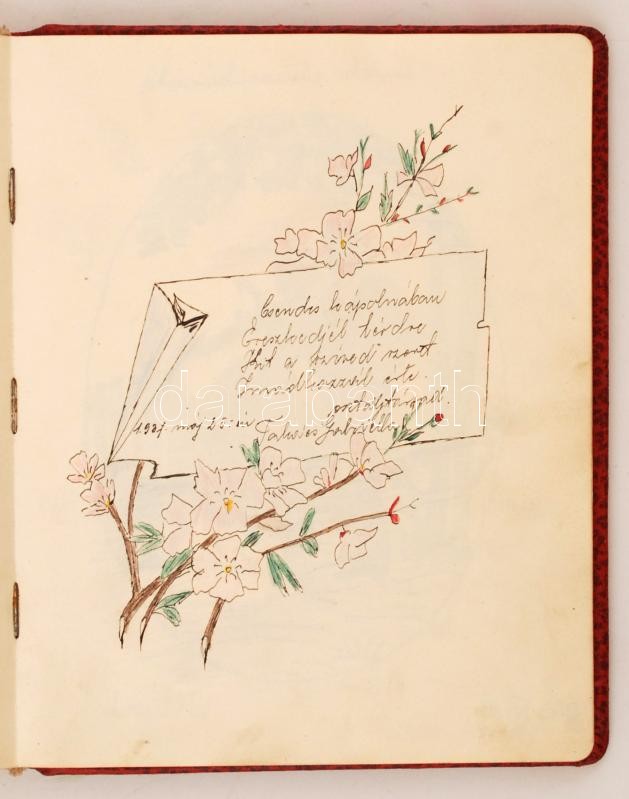 Csendes kápolnában
Ereszkedjél térdre
Kit a szíved szeret
Imádkozzál érte.
osztálytársad.
1937. máj 25
Takács Gabriella
darabanth